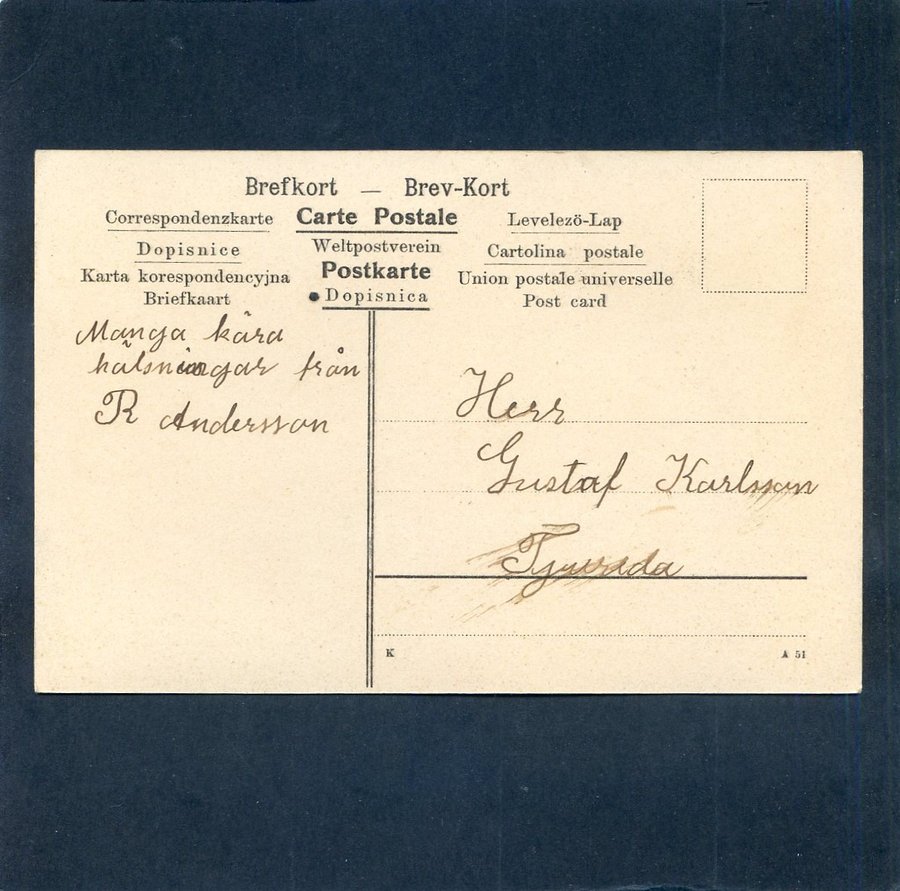 Brefkort — Brev-Kort
Correspondenzkarte Carte Postale Levelezö-Lap
Dopisnice Weltpostverein Cartolina postale
Karta korespondencyjna Postkarte Union postale universelle
Briefkaart Dopisnica Post card
Manga kära
hälsningar från
R Andersson
Herr
Gustaf Karlsson
K A 51